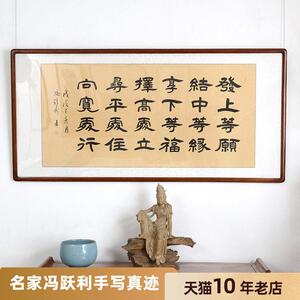 發上等願
結中等緣
享下等福
擇高處立
尋平處住
向寬處行
名家冯跃利手写真迹
天猫10年老店